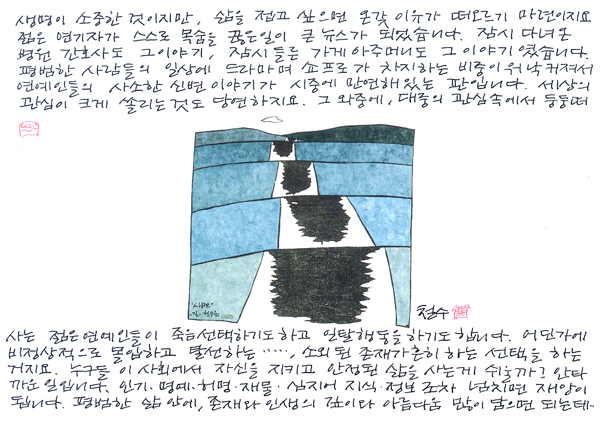 생명이 소중한 것이지만, 삶을 접고 싶으면 온갖 이유가 떠오르기 마련이지요
젊은 연기자가 스스로 목숨을 끊은일이 큰 뉴스가 되었습니다. 잠시 다녀온
병원 간호사도 그이야기, 잠시 들른 가게 아주머니도 그 이야기 였습니다.
평범한 사람들의 일상에 드라마며 쇼프로가 차지하는 비중이 워낙 커져서
연예인들의 사소한 신변 이야기가 시중에 만연해 있는 판입니다. 세상의
관심이 크게 쏠리는 것도 당연하지요. 그 와중에, 대중의 관심속에서 둥둥떠
철수
사는 젊은연예인들이 죽음선택하기도하고 일탈행동을하기도합니다. 어딘가에
비정상적으로 몰입하고 탈선하는‥‥‥, 소외된 존재가흔히 하는 선택을 하는
거지요. 누구들 이 사회에서 자신을 지키고 안정된 삶을 사는게 쉬울까? 안타
까운 일입니다. 인기·명예·허명·재물· 심지어 지식·정보 조차 넘치면 재앙이
됩니다. 평범한 삶 안에, 존재와 인생의 깊이와 아름다움 많이 담으면 되는데-